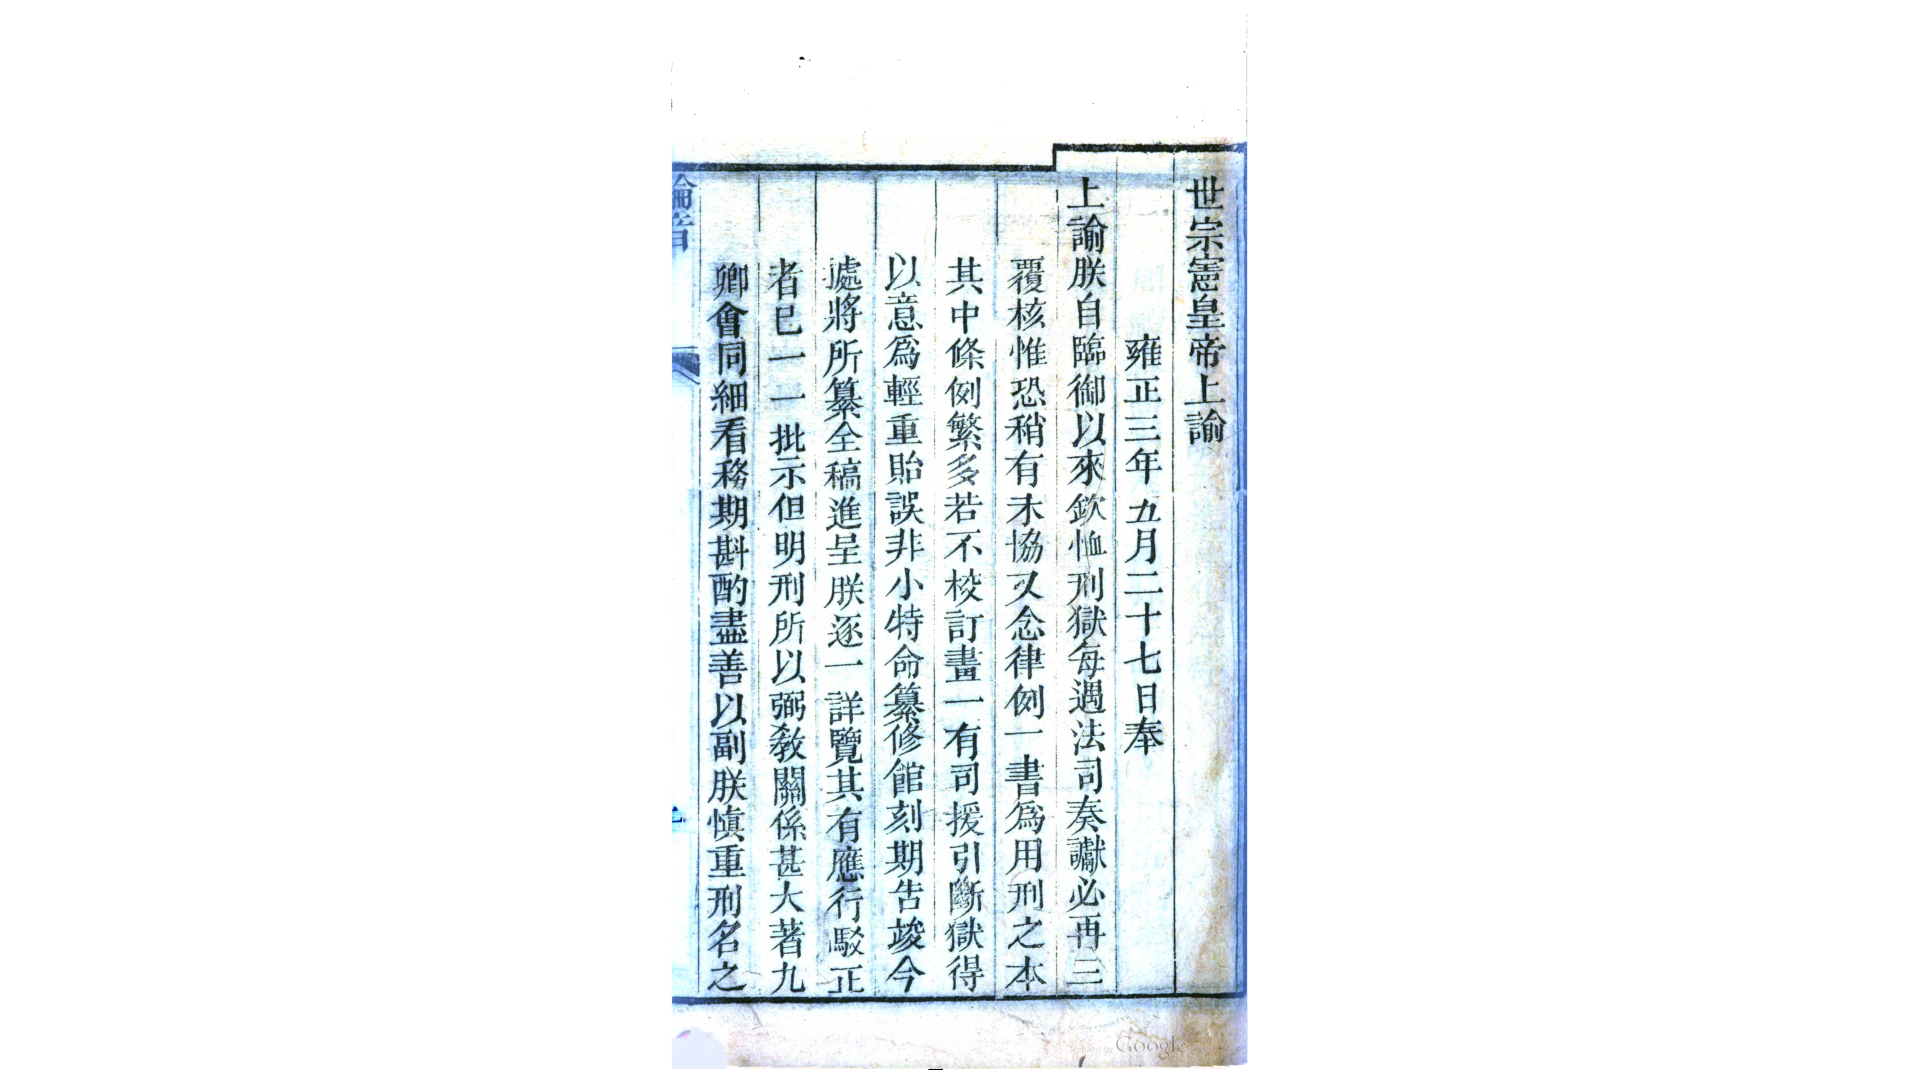 世宗憲皇帝上諭
雍正三年五月二十七日奉
上諭朕自臨御以來欽恤刑獄每遇法司奏讞必再三
覆核惟恐稍有未協又念律例一書爲用刑之本
其中條例繁多若不校訂畫一有司援引斷獄得
以意爲輕重貽誤非小特命纂修館刻期告竣今
處將所纂全稿進呈朕逐一詳覽其有應行駁正
者已一一批示但明刑所以弼教關係甚大著九
卿會同細看務期斟酌盡善以副朕慎重刑名之
綸音
Google